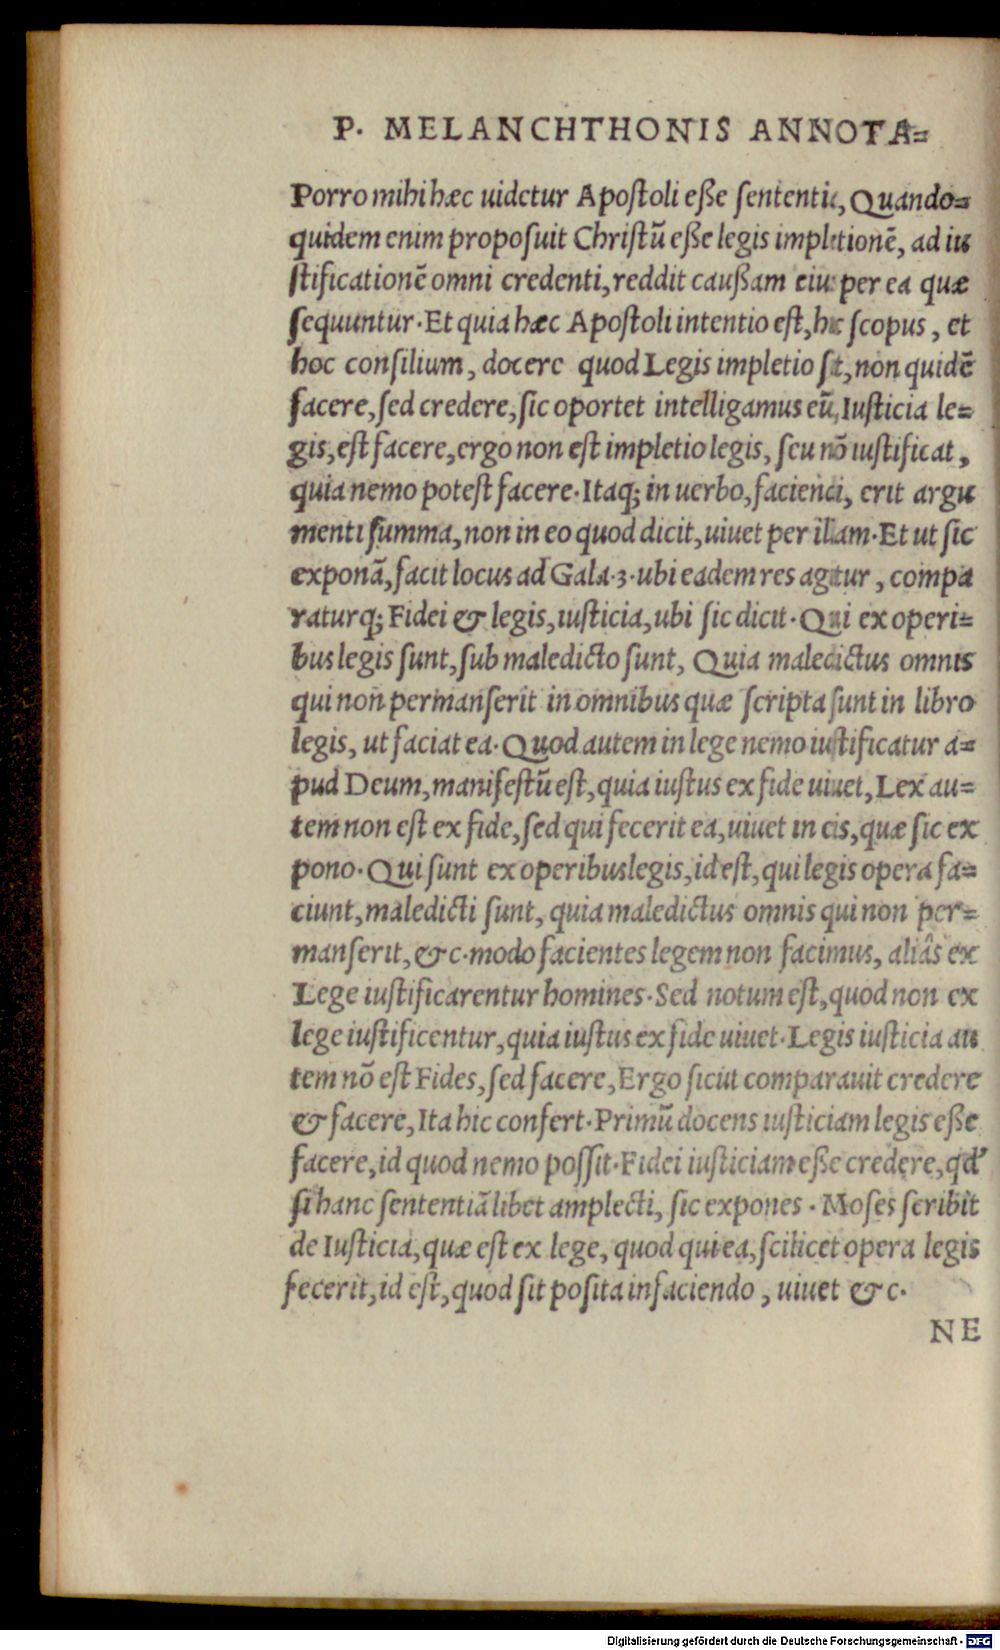 P. MELANCHTHONIS ANNOTA=
Porro mihi hæc uidetur Apostoli eße sententia, Quando=
quidem enim proposuit Christũ eße legis impletionẽ, ad iu
stificationẽ omni credenti, reddit caußam eius per ea quæ
sequuntur. Et quia hæc Apostoli intentio est, hic scopus, et
hoc consilium, docere quod Legis impletio sit, non quidẽ
facere, sed credere, sic oportet intelligamus eũ, Iusticia le=
gis, est facere, ergo non est impletio legis, seu nõ iustificat,
quia nemo potest facere. Itaq; in uerbo, facienci, erit argu
menti summa, non in eo quod dicit, uiuet per illam. Et ut sic
exponã, facit locus ad Gala.3. ubi eadem res agitur, compa
raturq; Fidei & legis, iusticia, ubi sic dicit. Qui ex operi=
bus legis sunt, sub maledicto sunt, Quia maledictus omnis
qui non permanserit in omnibus quæ scripta sunt in libro
legis, ut faciat ea. Quod autem in lege nemo iustificatur a=
pud Deum, manifestũ est, quia iustus ex fide uiuet, Lex au=
tem non est ex fide, sed qui fecerit ea, uiuet in eis, quæ sic ex
pono. Qui sunt ex operibus legis, id est, qui legis opera fa=
ciunt, maledicti sunt, quia maledictus omnis qui non per=
manserit, &c. modo facientes legem non facimus, aliâs ex
Lege iustificarentur homines. Sed notum est, quod non ex
lege iustificentur, quia iustus ex fide uiuet. Legis iusticia au
tem nõ est Fides, sed facere, Ergo sicut comparauit credere
& facere, Ita hic confert. Primũ docens iusticiam legis eße
facere, id quod nemo possit. Fidei iusticiam eße credere, qd'
si hanc sententiã libet amplecti, sic expones. Moses scribit
de Iusticia, quæ est ex lege, quod qui ea, scilicet opera legis
fecerit, id est, quod sit posita in faciendo, uiuet &c.
NE
Digitalisierung gefördert durch die Deutsche Forschungsgemeinschaft - DFG